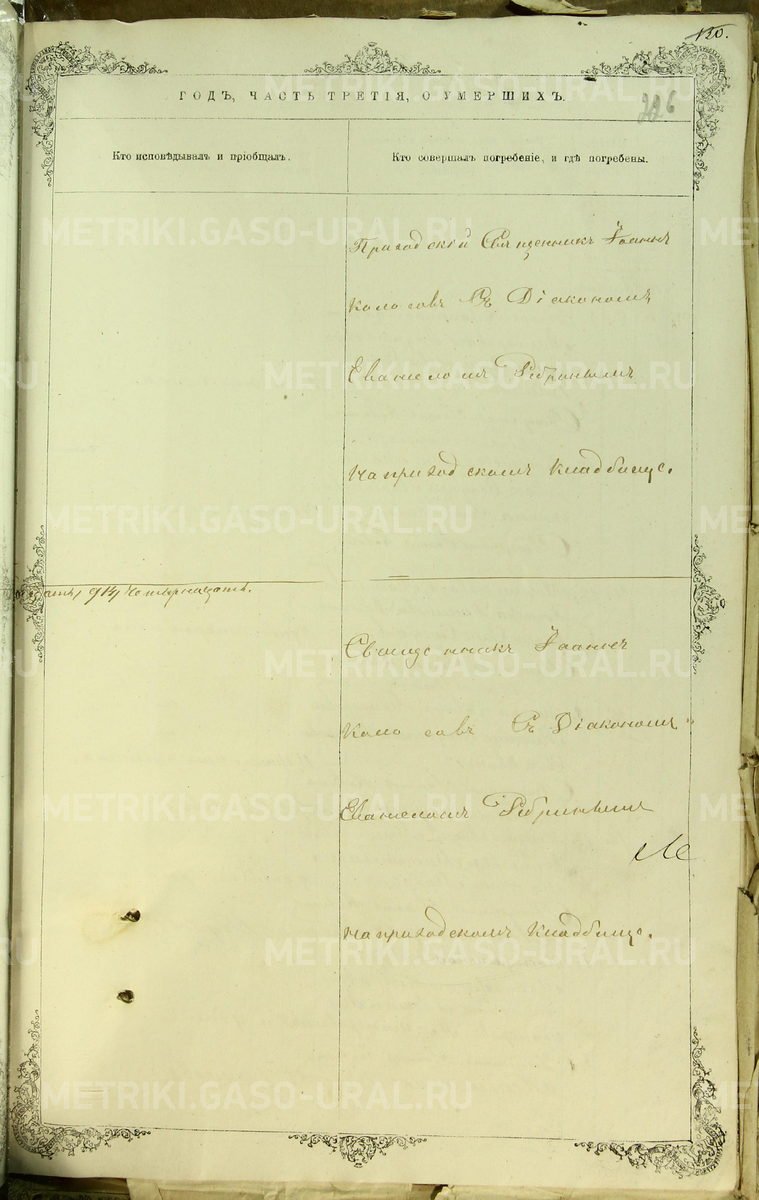 150.
226
ГОДЪ, ЧАСТЬ ТРЕТІЯ, О УМЕРШИХЪ.
Кто исповѣдывалъ и пріобщалъ.
Кто совершалъ погребеніе, и гдѣ погребены.
Приходскій Священникъ Іоаннъ
Кологовъ Съ Діакономъ
Евангеломъ Ребринымъ
На приходскомъ Кладбище.
/ 914 / Четырнацать.
Священникъ Іоаннъ
Кологовъ Съ Діакономъ
Евангеломъ Ребринымъ
На приходскомъ Кладбище.
METRIKI.GASO-URAL.RU